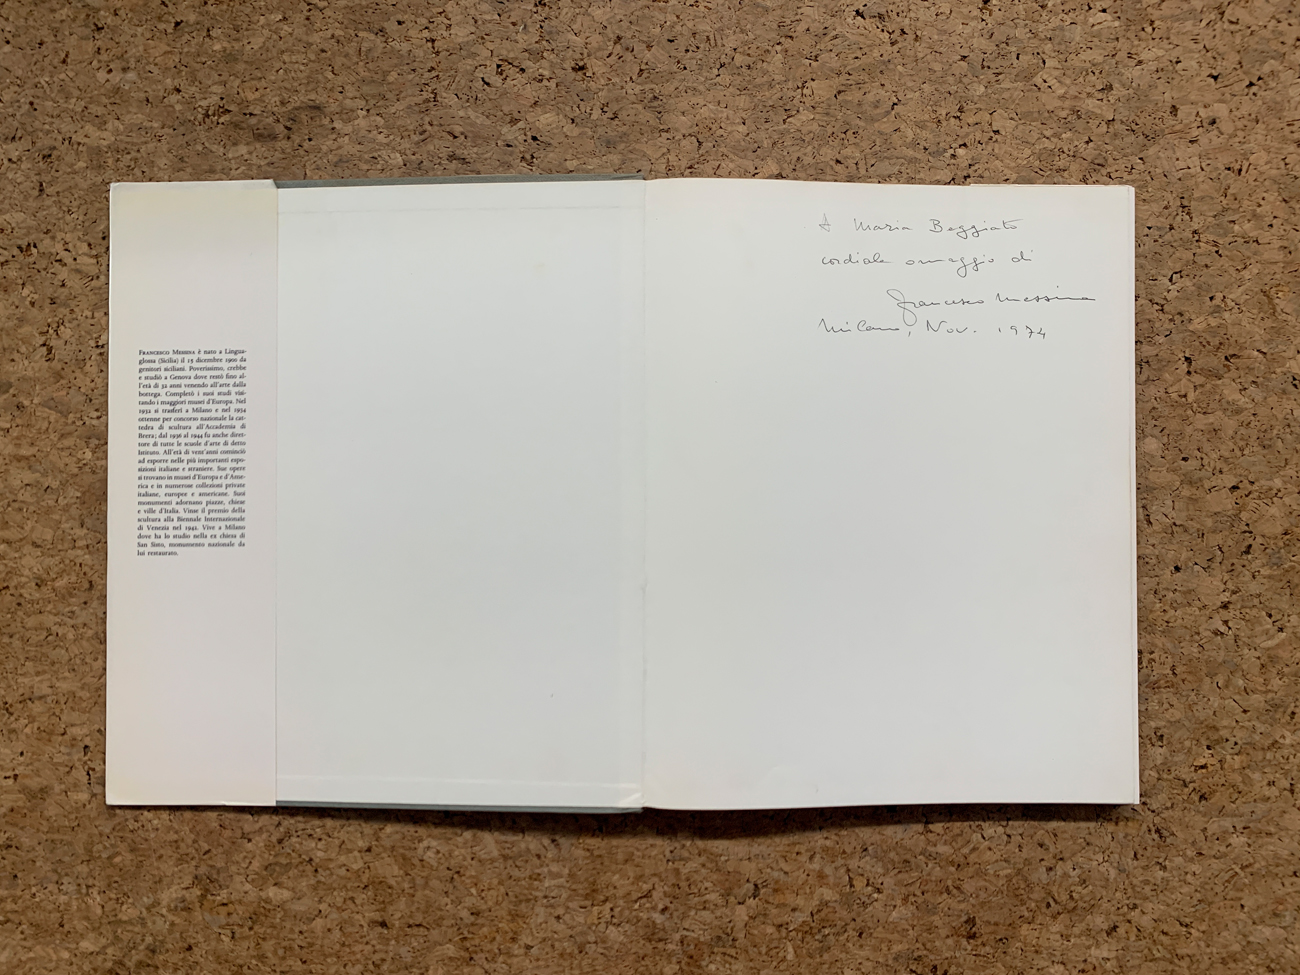 Francesco Messina è nato a Lingua-
glossa (Sicilia) il 15 dicembre 1900 da
genitori siciliani. Poverissimo, crebbe
e studiò a Genova dove restò fino al-
l'età di 32 anni venendo all'arte dalla
bottega. Completò i suoi studi visi-
tando i maggiori musei d'Europa. Nel
1932 si trasferì a Milano e nel 1934
ottenne per concorso nazionale la cat-
tedra di scultura all'Accademia di
Brera; dal 1936 al 1944 fu anche diret-
tore di tutte le scuole d'arte di detto
Istituto. All'età di vent'anni cominciò
ad esporre nelle più importanti espo-
sizioni italiane e straniere. Sue opere
si trovano in musei d'Europa e d'Ame-
rica e in numerose collezioni private
italiane, europee e americane. Suoi
monumenti adornano piazze, chiese
e ville d'Italia. Vinse il premio della
scultura alla Biennale Internazionale
di Venezia nel 1942. Vive a Milano
dove ha lo studio nella ex chiesa di
San Sisto, monumento nazionale da
lui restaurato.
A Maria Beggiato
cordiale omaggio di
Francesco Messina
Milano, Nov. 1974